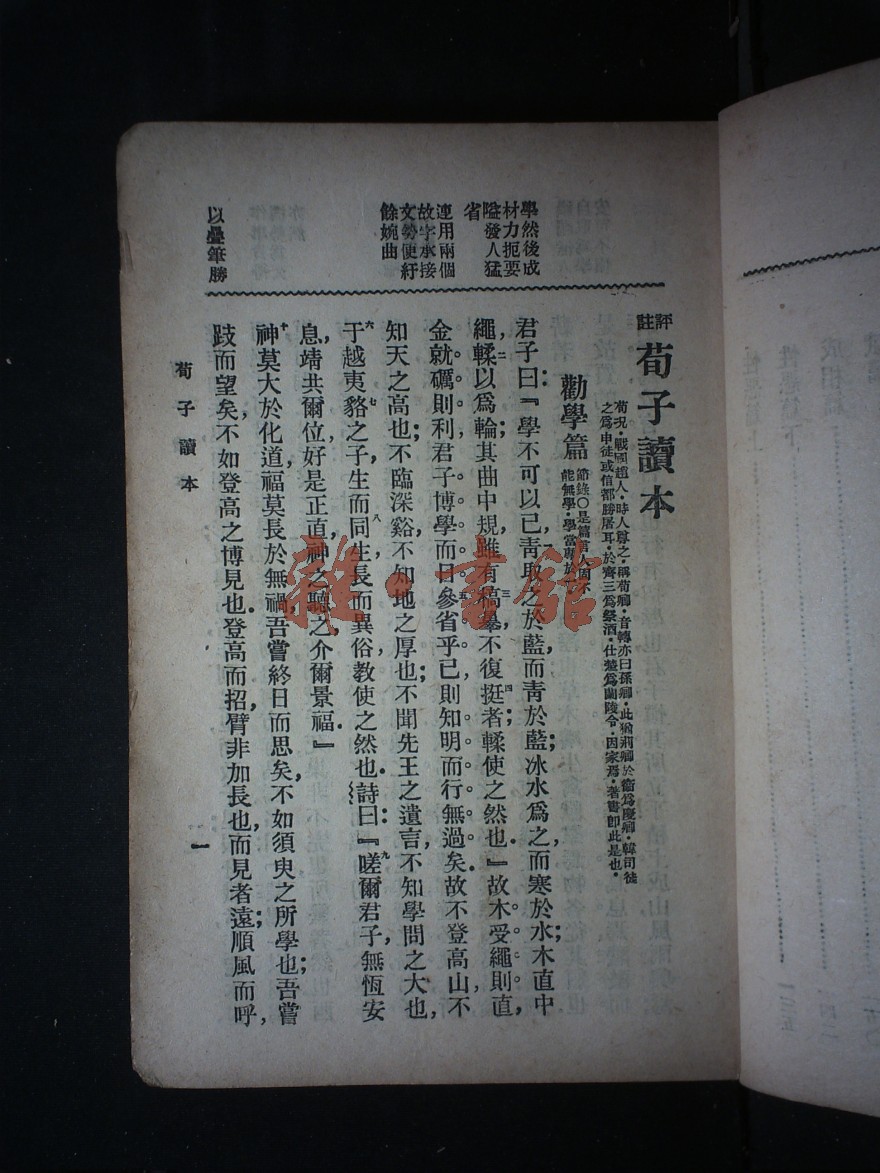 學然後成
材力扼要
隘發人猛
省
連用兩個
故字承接
文勢便紆
餘婉曲
以疊筆勝
評註
荀子讀本
荀況·戰國趙人·時人尊之·稱荀卿·音轉亦曰孫卿·此猶荊卿於衛爲慶卿·韓司徒
之爲申徒或信都勝屠耳·於齊三爲祭酒·仕楚爲蘭陵令·因家焉·著書卽此是也·
勸學篇
節錄○是篇言人固不
能無學·學當專於
君子曰:『學不可以已靑取之於藍而靑於藍;冰水爲之而寒於水木直中
繩,輮以爲輪;其曲中規雖有槁暴,不復挺者輮使之然也.』故木受繩則直,
金就礪則利君子博學而日參省乎己則知明而行無過矣.故不登高山不
知天之高也;不臨深谿不知地之厚也;不聞先王之遺言,不知學問之大也,
于越夷貉之子生而同生,長而異俗教使之然也.詩曰:『嗟爾君子,無恆安
息,靖共爾位,好是正直神之聽之介爾景福.』
神莫大於化道,福莫長於無禍,吾嘗終日而思矣,不如須臾之所學也;吾嘗
跂而望矣,不如登高之博見也.登高而招,臂非加長也,而見者遠;順風而呼,
荀子讀本
一
雜·書館